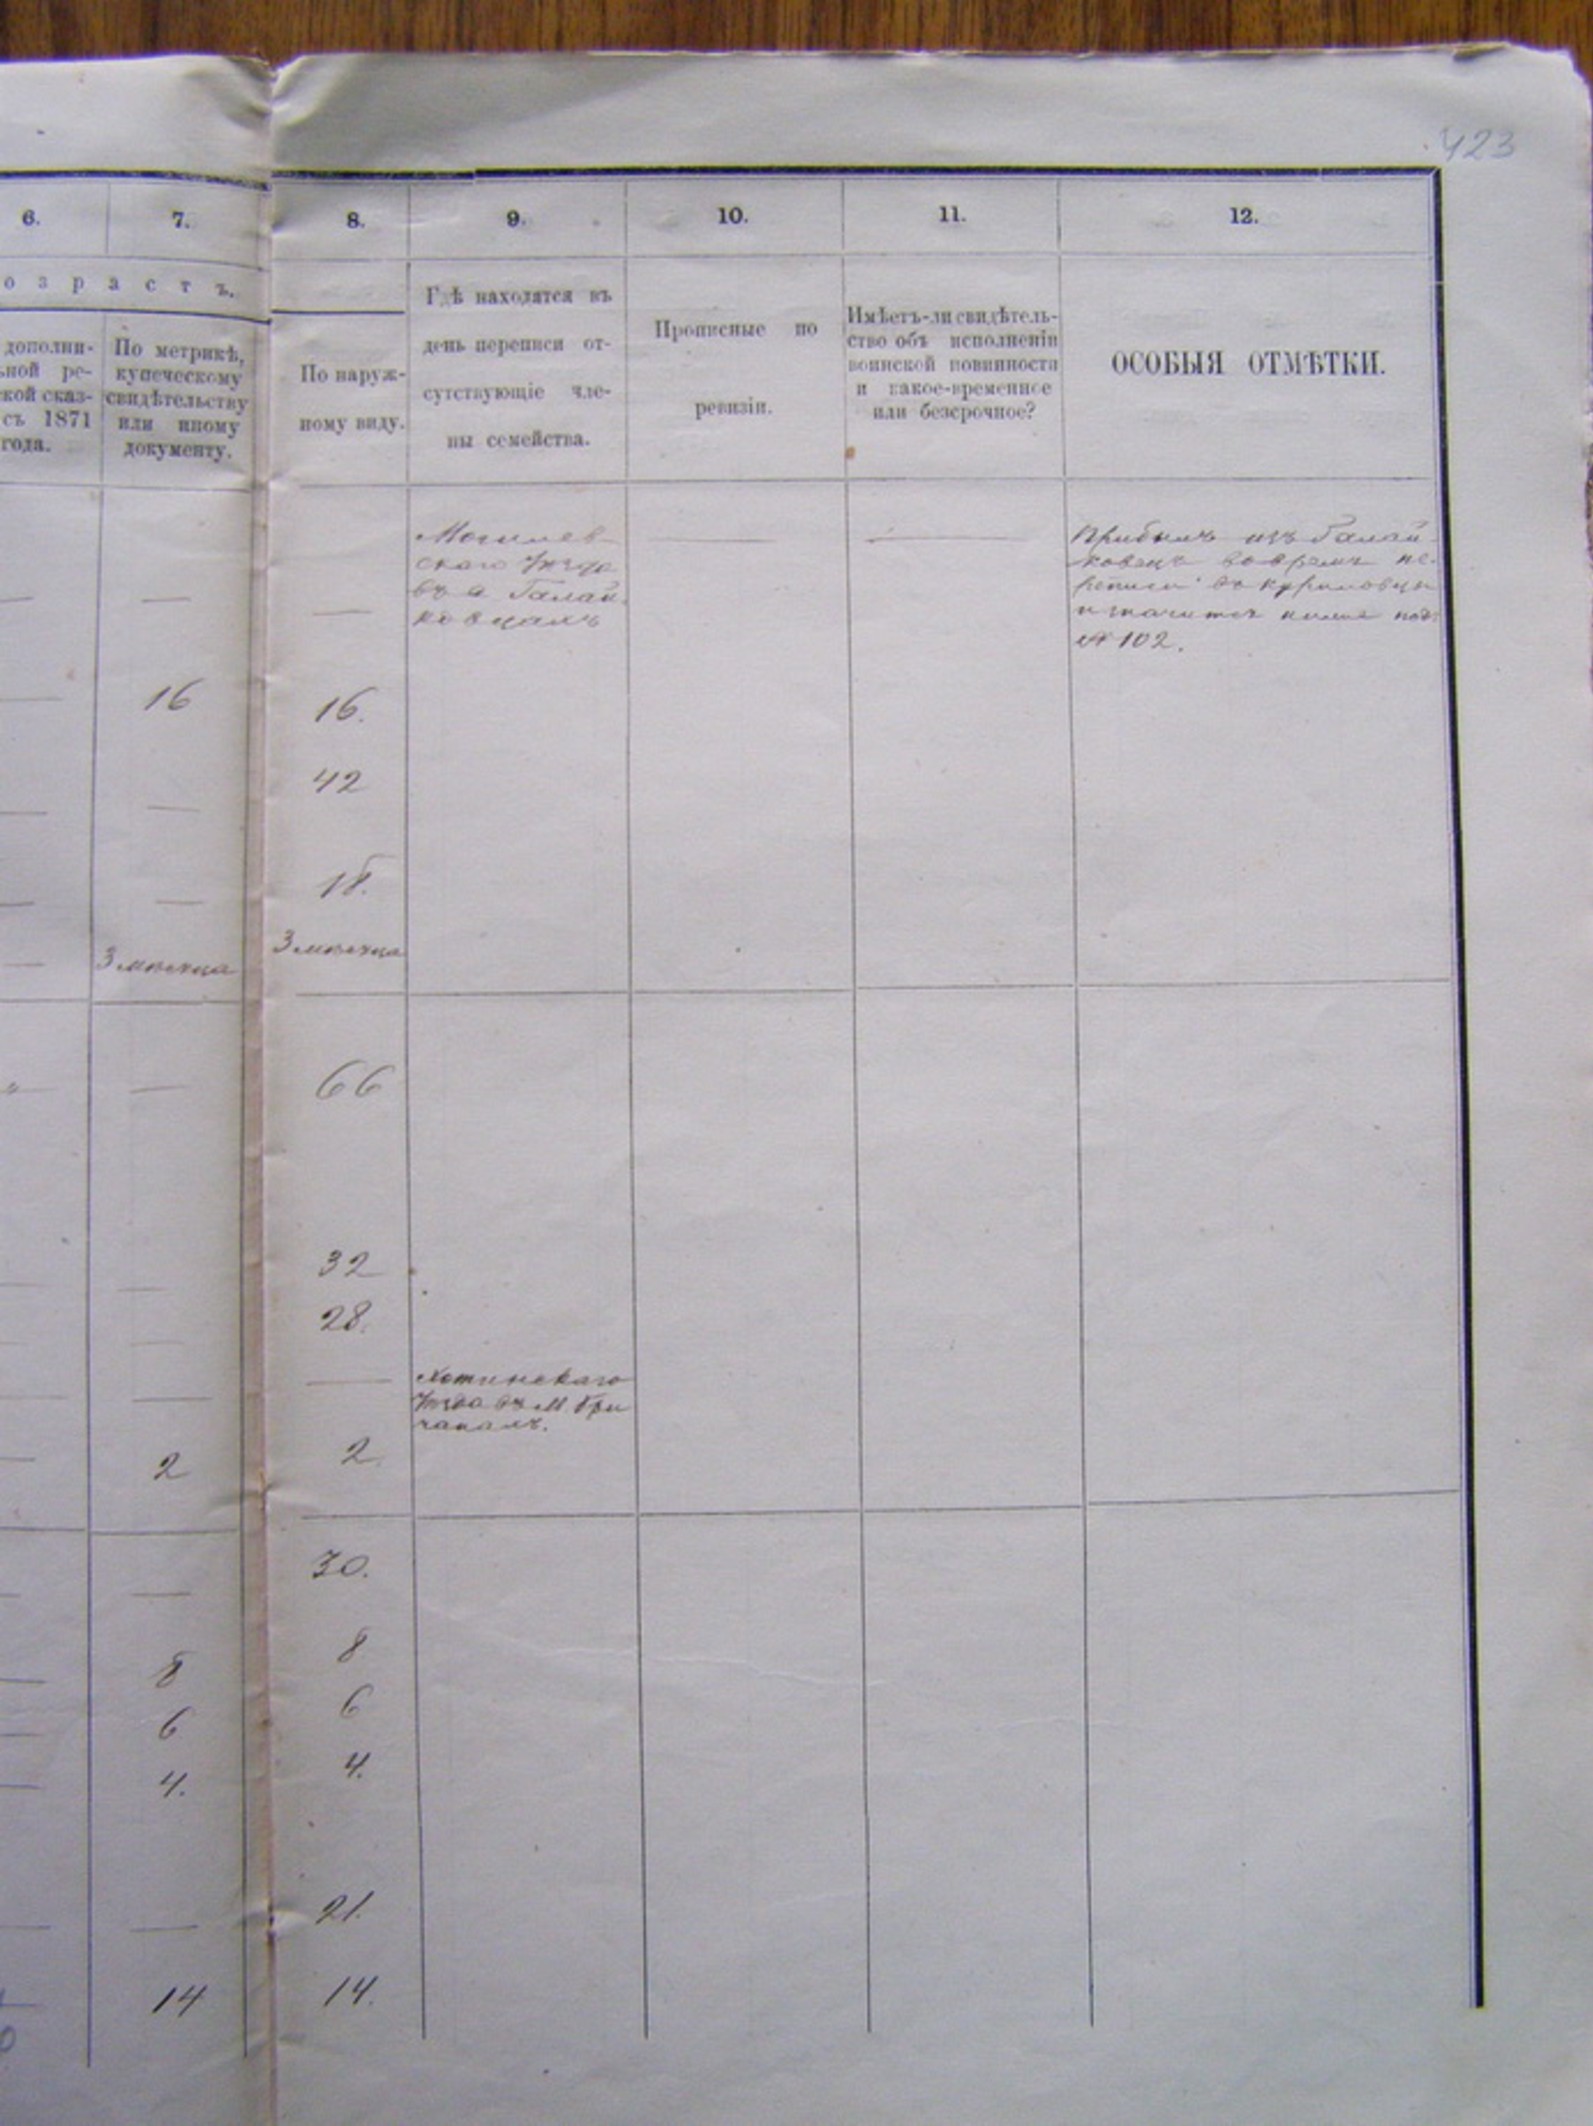 423
6. 7. 8. 9. 10. 11. 12.
озрастъ.
дополни-
ьной ре-
ской сказ-
съ 1871
года.
По метрикѣ,
купеческому
свидѣтельству
или иному
документу.
По наруж-
ному виду.
Гдѣ находятся въ
день переписи от-
сутствующіе чле-
ны семейства.
Прописные по
ревизіи.
Имѣетъ-ли свидѣтель-
ство объ исполненіи
воинской повинности
и какое-временное
или безсрочное?
ОСОБЫЯ ОТМѢТКИ.
Могилев-
скаго Уѣзда
въ с Галай-
ковцахъ
Прибылъ изъ Галай-
ковецъ во время пе-
реписи въ Куриловцы
и значится ниже подъ
№ 102.
16 16.
42
18.
3 мѣсяца 3 мѣсяца
66
32
28.
Хотинскаго
Уѣзда въ М. Бри
чанахъ.
2 2.
30.
8 8
6 6
4. 4.
21.
14 14.